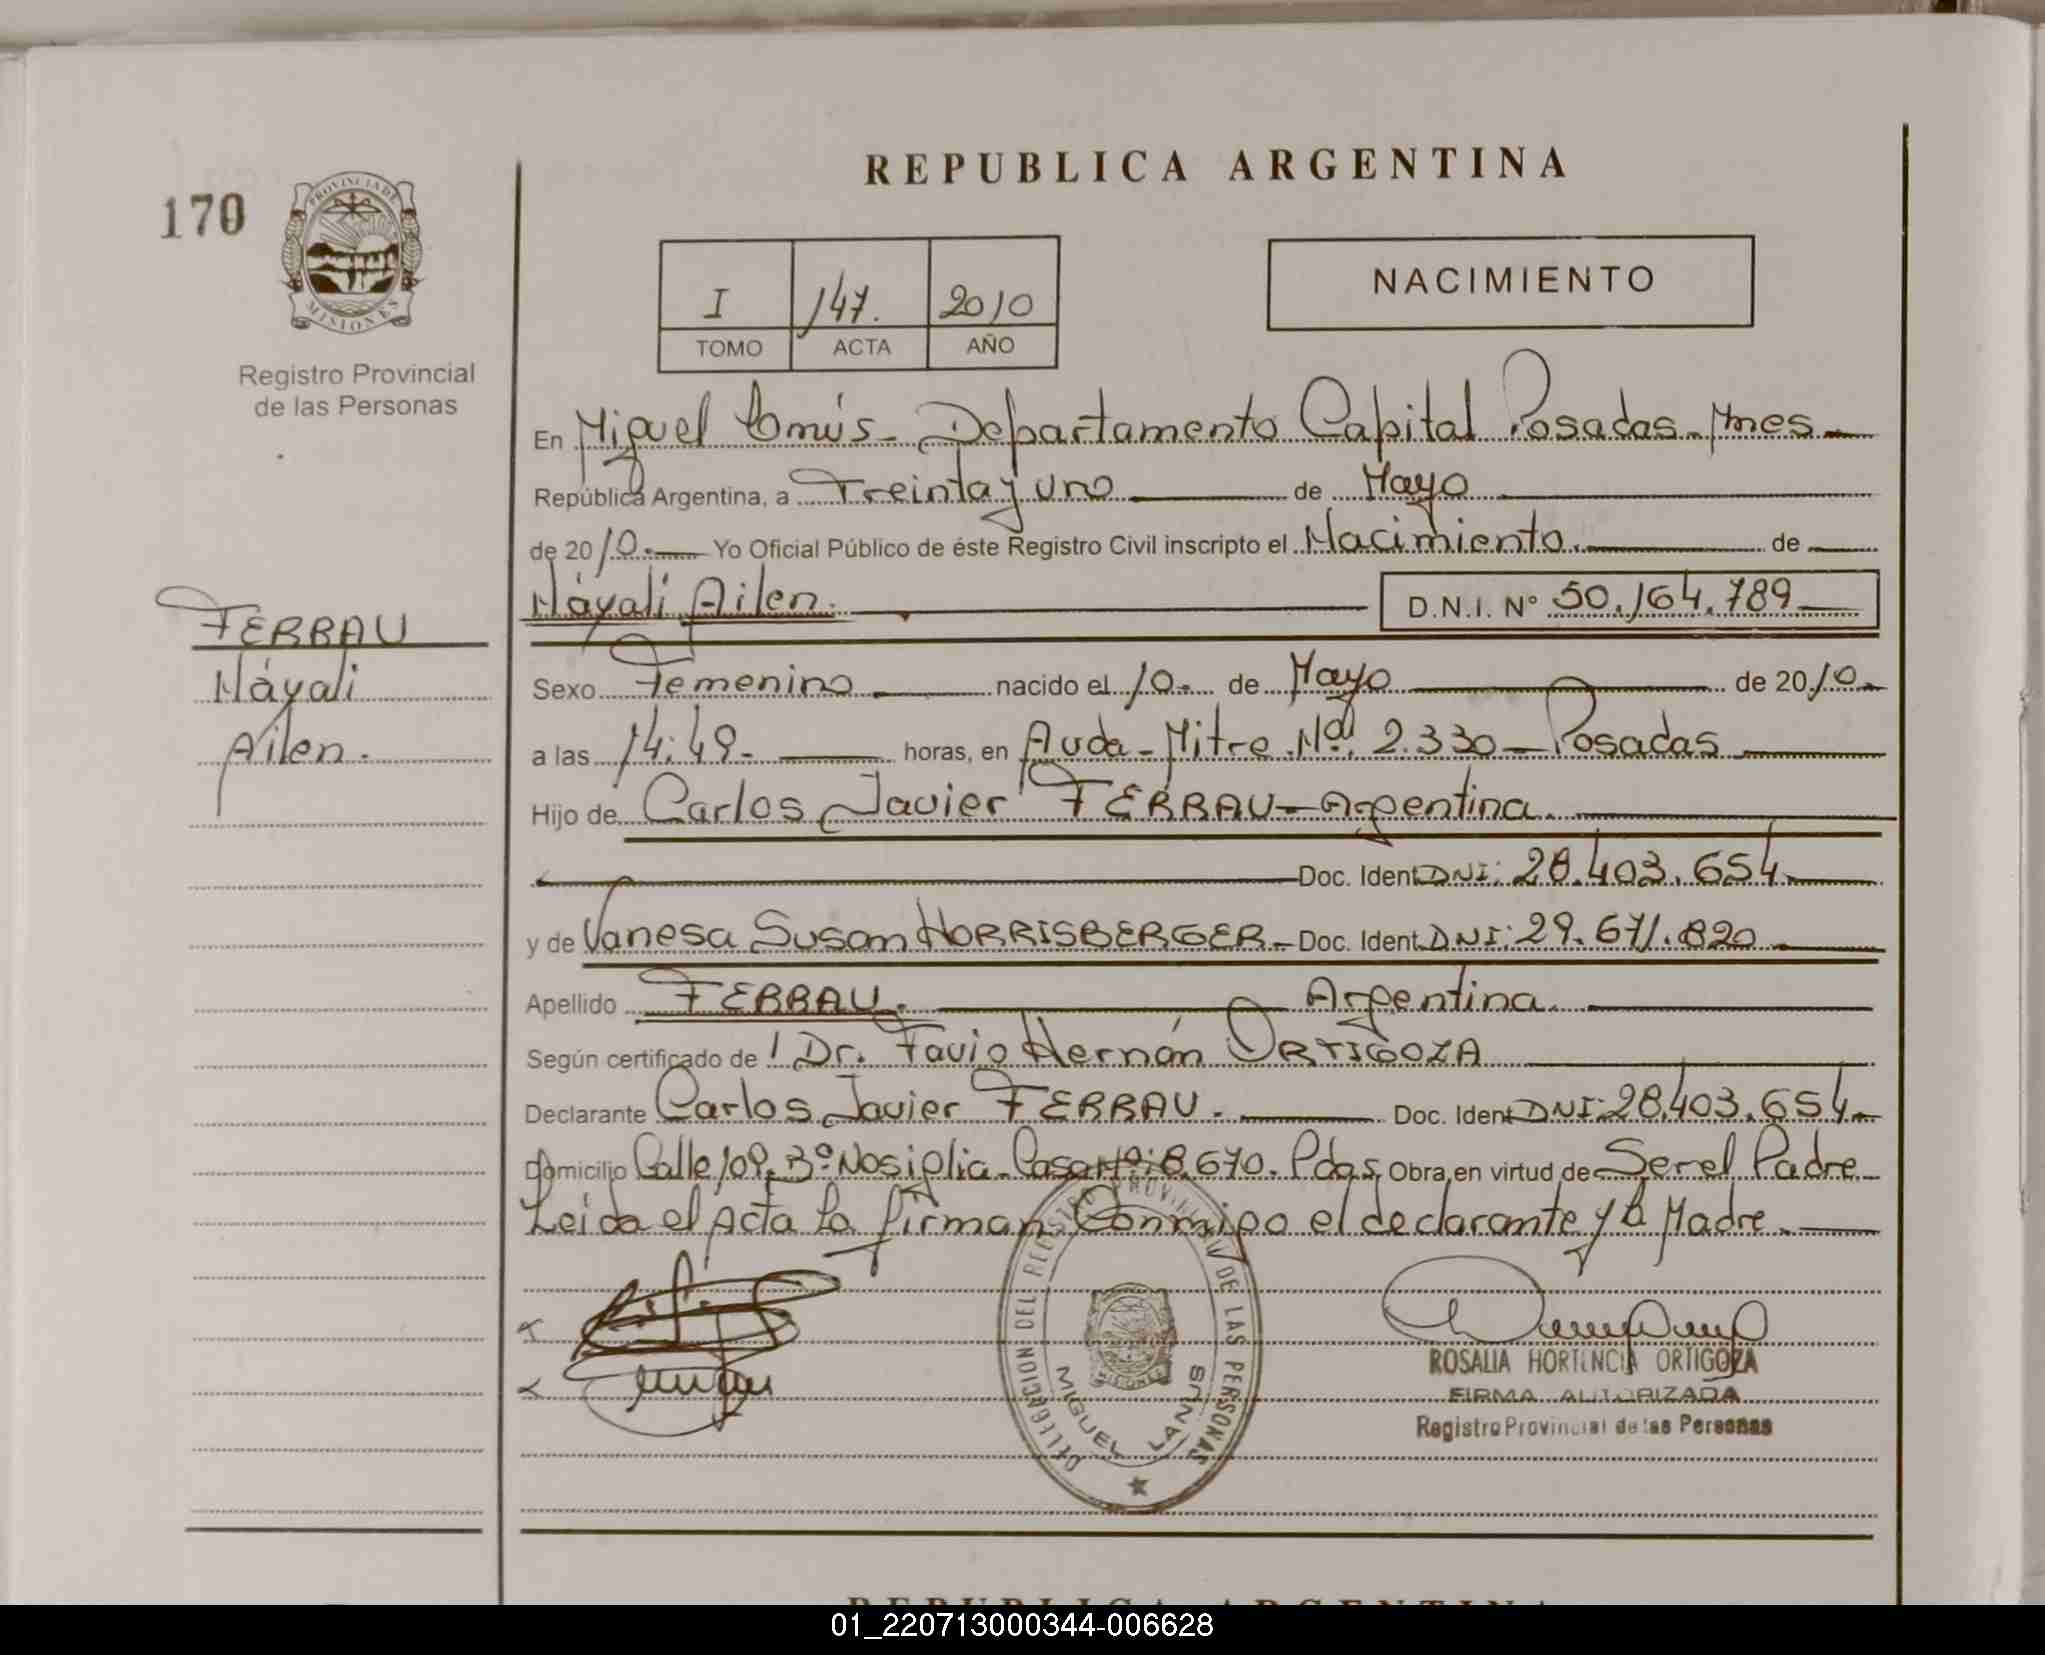 REPUBLICA ARGENTINA
170
PROVINCIA DE
MISIONES
Registro Provincial
de las Personas
I 147. 2010
TOMO ACTA AÑO
NACIMIENTO
En Miguel Lanús - Departamento Capital Posadas - Mnes -
República Argentina, a Treinta y uno de Mayo
de 2010.- Yo Oficial Público de éste Registro Civil inscripto el Nacimiento. de
Náyali Ailen. D.N.I. Nº 50.164.789
FERRAU
Náyali
Ailen.
Sexo Femenino nacido el 10- de Mayo de 2010-
a las 14:49- horas, en Avda - Mitre Nº 2.330 - Posadas
Hijo de Carlos Javier FERRAU - Argentina.
Doc. Ident. DNI: 28.403.654
y de Vanesa Susan HORRISBERGER - Doc. Ident. DNI: 29.671.820
Apellido FERRAU. Argentina.
Según certificado de Dr. Favio Hernán ORTIGOZA
Declarante Carlos Javier FERRAU. Doc. Ident DNI: 28.403.654-
Domicilio Calle 109. Bº Nosiglia - Casa Nº: 8.670. Pdas. Obra en virtud de Ser el Padre -
Leída el Acta la firman Conmigo el declarante y la Madre.-
DELEGACION DEL REGISTRO PROVINCIAL DE LAS PERSONAS
MISIONES
MIGUEL LANUS
ROSALIA HORTENCIA ORTIGOZA
FIRMA AUTORIZADA
Registro Provincial de las Personas
REPUBLICA ARGENTINA
01_220713000344-006628